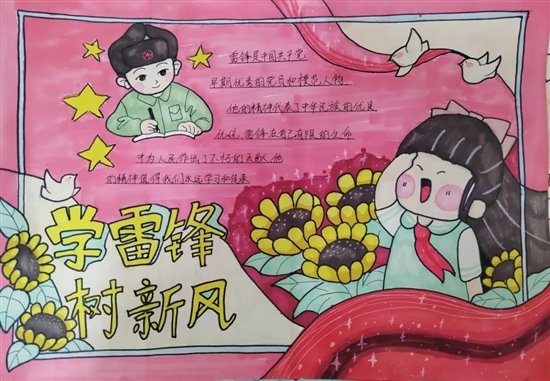 雷锋是中国共产党
早期优秀的党员和模范人物,
他的精神代表了中华民族的优良
传统,雷锋在自己有限的生命
中为人民作出了不朽的贡献,他
的精神值得我们永远学习和传承
学雷锋
树新风